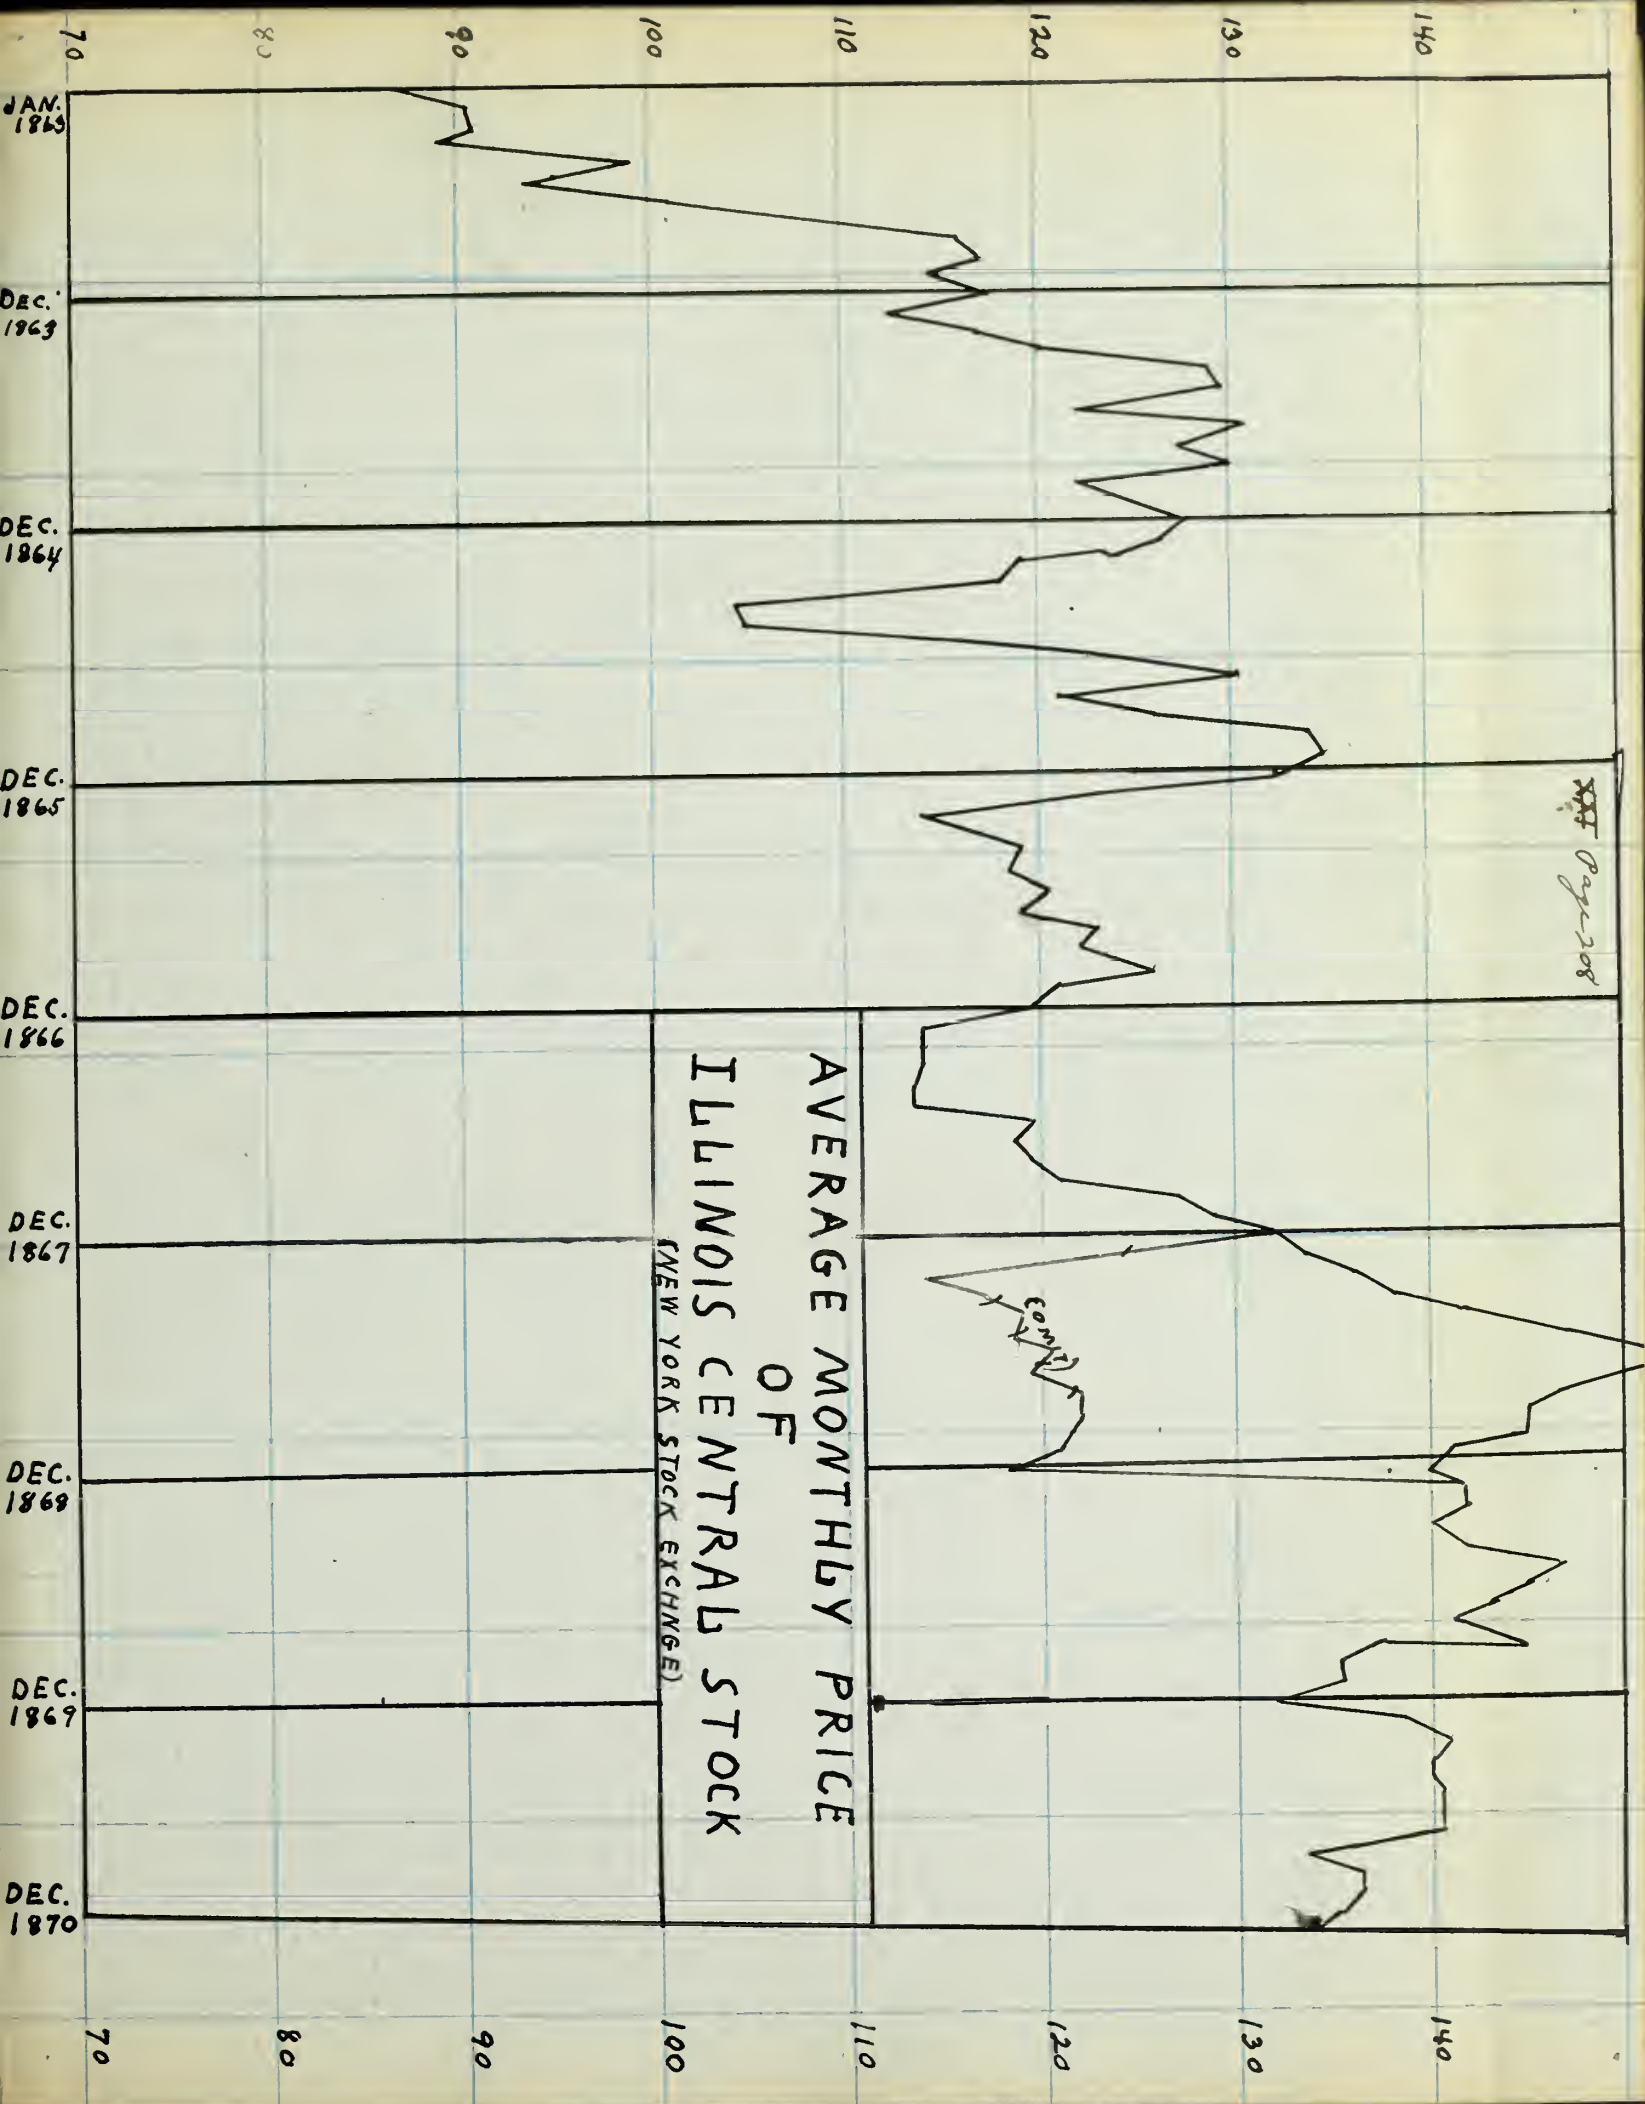 70
80
90
100
110
120
130
140
JAN.
1863
DEC.
1863
DEC.
1864
DEC.
1865
DEC.
1866
DEC.
1867
DEC.
1868
DEC.
1869
DEC.
1870
Page 208
AVERAGE MONTHLY PRICE
OF
ILLINOIS CENTRAL STOCK
(NEW YORK STOCK EXCHNGE)
70
80
90
100
110
120
130
140